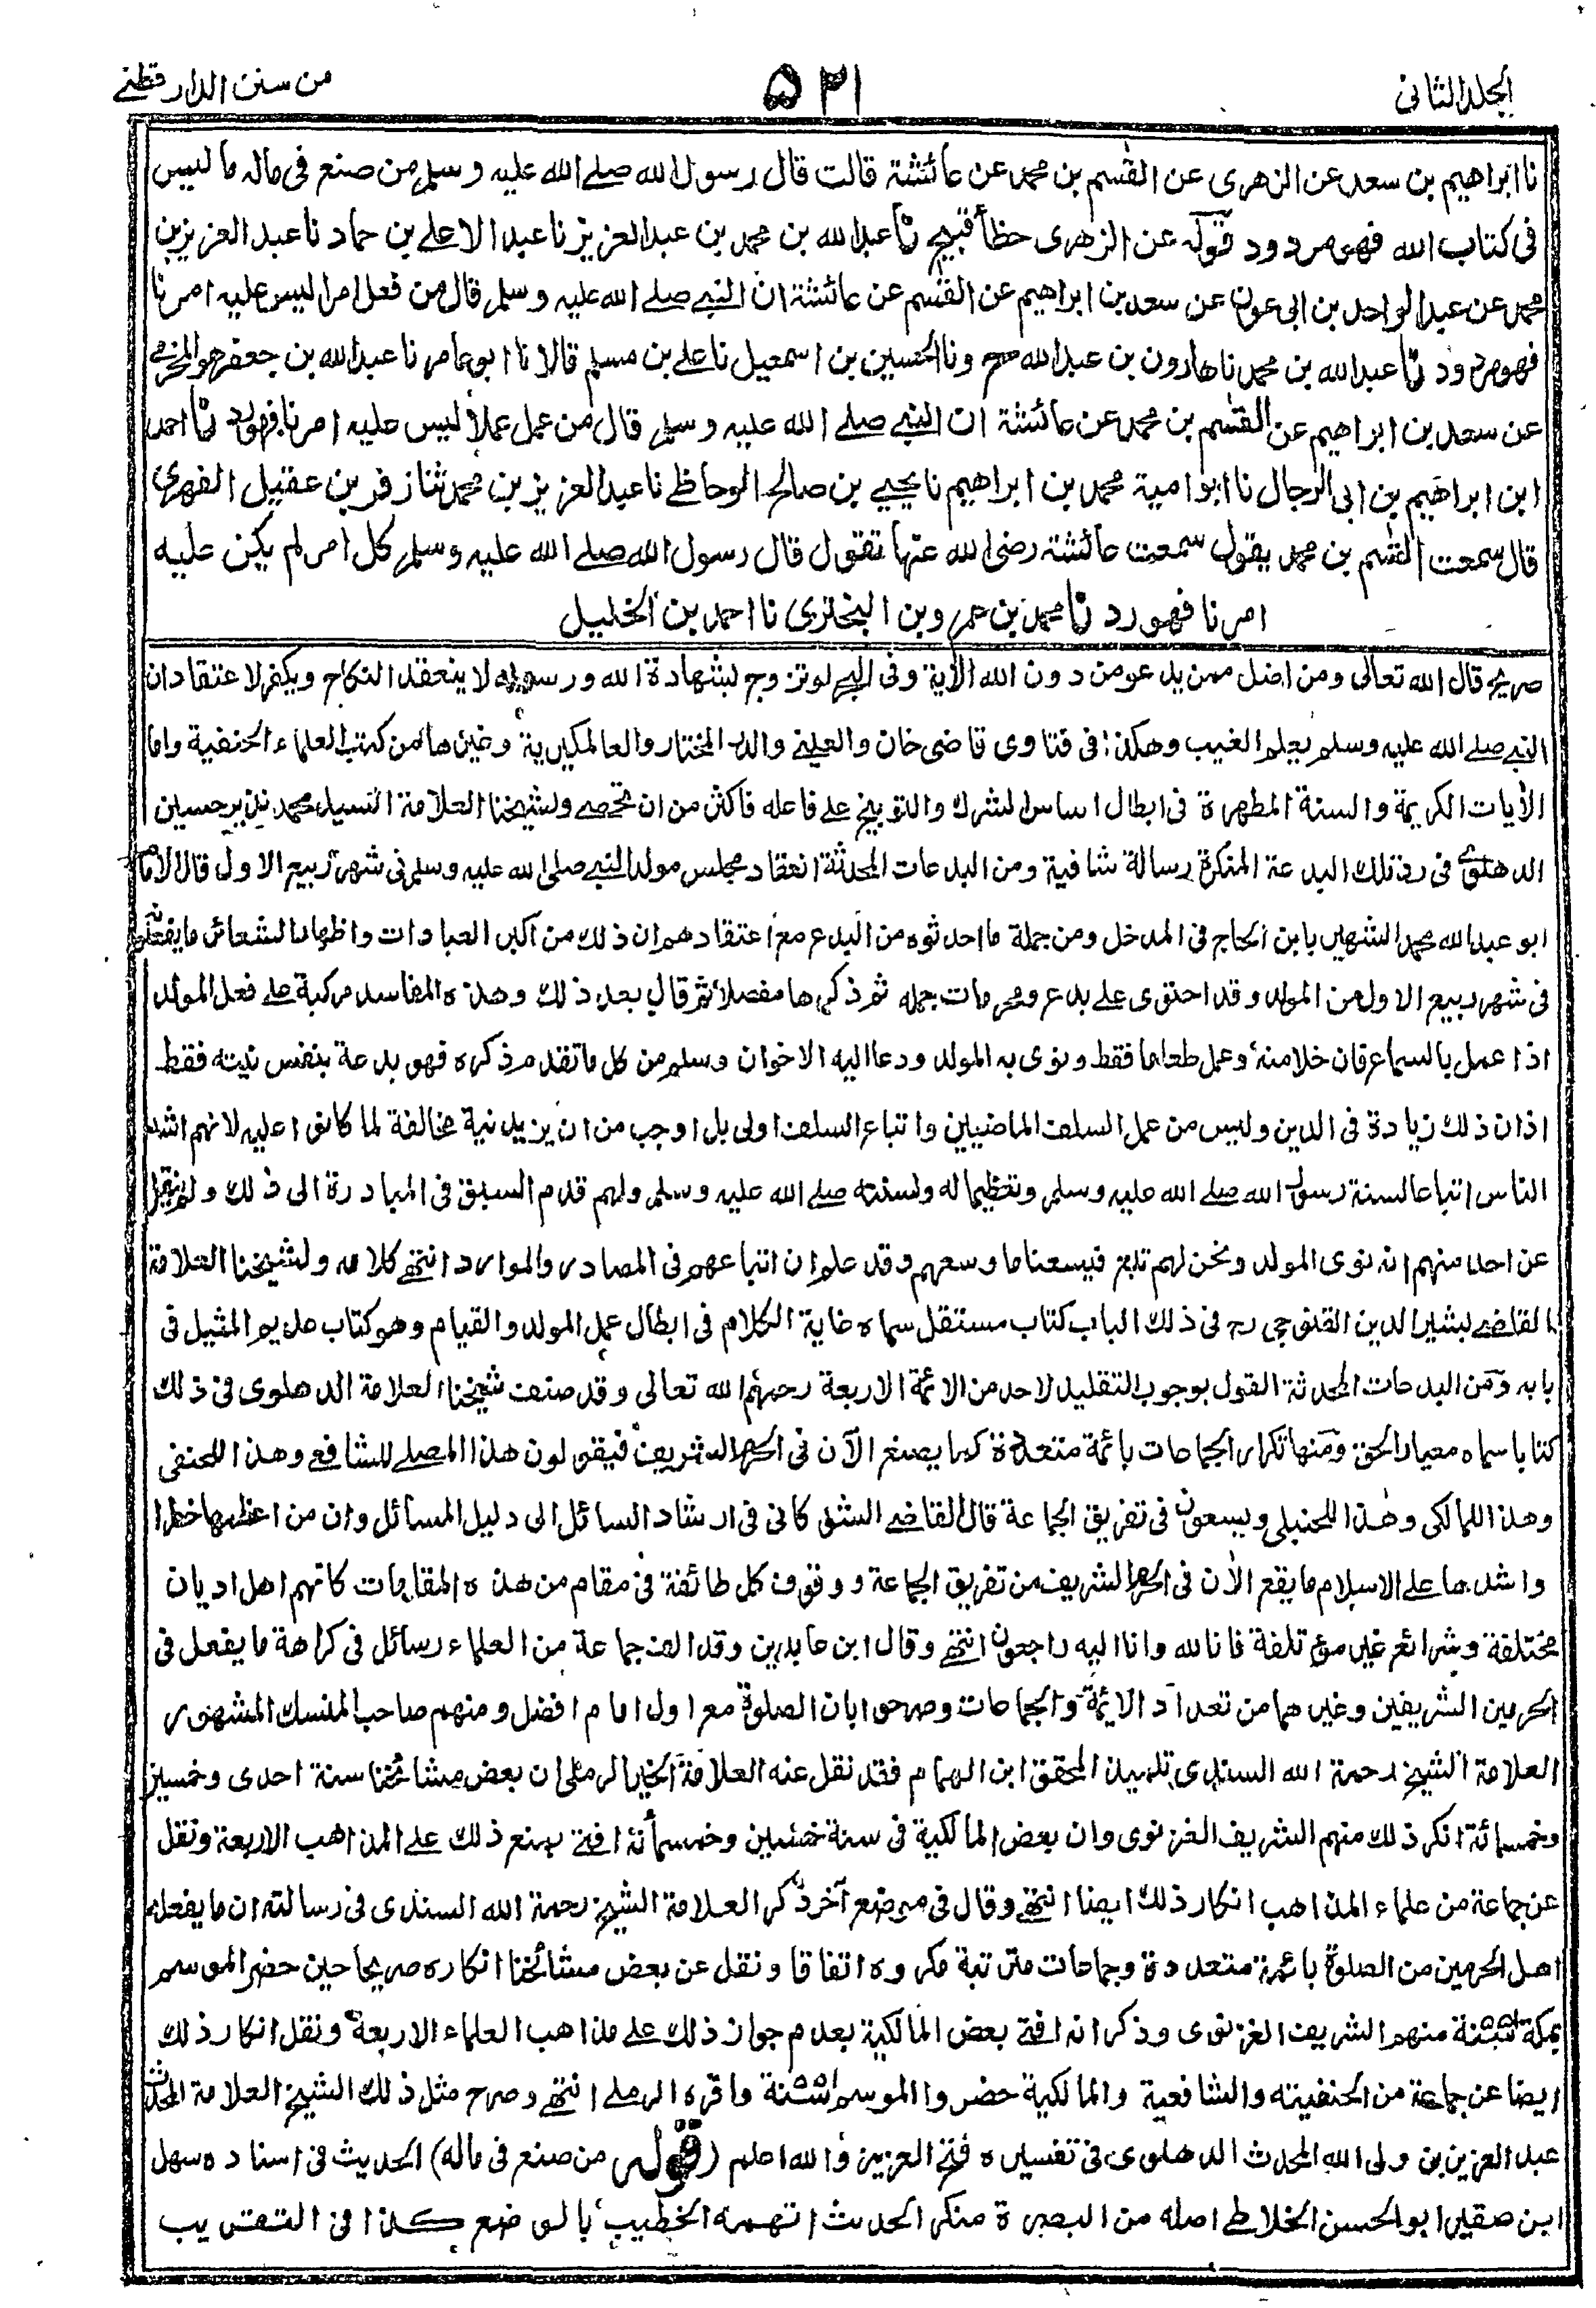 الجلد الثانى
۵۲۱
من سنن الدار قطنے
نا ابراهيم بن سعد عن الزهرى عن القسم بن محمد عن عائشة قالت قال رسول الله صلے الله عليه وسلم من صنع فى ماله ما ليس
فى كتاب الله فهو مردود قوله عن الزهرى خطأ قبيح نا عبد الله بن محمد بن عبد العزيز نا عبد الاعلے بن حماد نا عبد العزيز بن
محمد عن عبد الواحد بن ابى عون عن سعد بن ابراهيم عن القسم عن عائشة ان النبے صلے الله عليه وسلم قال من فعل امرا ليس عليه امرنا
فهو مردود نا عبد الله بن محمد نا هارون بن عبد الله ح ونا الحسين بن اسمعيل نا علے بن مسلم قالا نا ابو عامر نا عبد الله بن جعفر هو المخرمے
عن سعد بن ابراهيم عن القسم بن محمد عن عائشة ان النبے صلے الله عليه وسلم قال من عمل عملا ليس عليه امرنا فهو رد نا احمد
ابن ابراهيم بن ابى الرجال نا ابو امية محمد بن ابراهيم نا يحيے بن صالح الوحاظے نا عبد العزيز بن محمد ثنا زفر بن عقيل الفهرى
قال سمعت القسم بن محمد يقول سمعت عائشة رضى الله عنها تقول قال رسول الله صلے الله عليه وسلم كل امر لم يكن عليه
امرنا فهو رد نا محمد بن عمرو بن البخترى نا احمد بن الخليل
صريح قال الله تعالى ومن اضل ممن يدعو من دون الله الآية وفى البحر لو تزوج بشهادة الله ورسوله لا ينعقد النكاح ويكفر لاعتقاد ان
النبے صلے الله عليه وسلم يعلم الغيب وهكذا فى فتاوى قاضى خان والعينے والدر المختار والعالمكيرية وغيرها من كتب العلماء الحنفية واما
الآيات الكريمة والسنة المطهرة فى ابطال اساس الشرك والتوبيخ علے فاعله فاكثر من ان تحصے ولشيخنا العلامة السيد محمد نذير حسين
الدهلوے فى رد تلك البدعة المنكرة رسالة شافية ومن البدعات المحدثة انعقاد مجلس مولد النبے صلى الله عليه وسلم فى شهر ربيع الاول قال الامام
ابو عبد الله محمد الشهير بابن الحاج فى المدخل ومن جملة ما احدثوه من البدع مع اعتقادهم ان ذلك من اكبر العبادات واظهار الشعائر ما يفعلونه
فى شهر ربيع الاول من المولد وقد احتوى علے بدع ومحرمات جمله ثم ذكرها مفصلا ثم قال بعد ذلك وهذه المفاسد مركبة علے فعل المولد
اذا عمل بالسماع فان خلا منه وعمل طعاما فقط ونوى به المولد ودعا اليه الاخوان وسلم من كل ما تقدم ذكره فهو بدعة بنفس نيته فقط
اذ ان ذلك زيادة فى الدين وليس من عمل السلف الماضيين واتباع السلف اولى بل اوجب من ان يزيد نية مخالفة لما كانوا عليه لانهم اشد
الناس اتباعا لسنة رسول الله صلے الله عليه وسلم وتعظيما له ولسنته صلے الله عليه وسلم ولهم قدم السبق فى المبادرة الى ذلك ولم ينقل
عن احد منهم انه نوى المولد ونحن لهم تابع فيسعنا ما وسعهم وقد علم ان اتباعهم فى المصادر والموارد انتهے كلامه ولشيخنا العلامة
القاضے بشير الدين القنوجى رح فى ذلك الباب كتاب مستقل سماه غاية الكلام فى ابطال عمل المولد والقيام وهو كتاب عديم المثيل فى
بابه ومن البدعات المحدثة القول بوجوب التقليد لاحد من الائمة الاربعة رحمهم الله تعالى وقد صنف شيخنا العلامة الدهلوى فى ذلك
كتابا سماه معيار الحق ومنها تكرار الجماعات بائمة متعددة كما يصنع الآن فى الحرم الشريف فيقولون هذا المصلے للشافعے وهذا للحنفى
وهذا للمالكى وهذا للحنبلى ويسعون فى تفريق الجماعة قال القاضے الشوكانى فى ارشاد السائل الى دليل المسائل وان من اعظمها خطرا
واشدها علے الاسلام ما يقع الآن فى الحرم الشريف من تفريق الجماعة ووقوف كل طائفة فى مقام من هذه المقامات كانهم اهل اديان
مختلفة وشرائع غير مؤتلفة فانا لله وانا اليه راجعون انتهے وقال ابن عابدين وقد الف جماعة من العلماء رسائل فى كراهة ما يفعل فى
الحرمين الشريفين وغيرهما من تعداد الائمة والجماعات وصرحوا بان الصلوة مع اول امام افضل ومنهم صاحب المنسك المشهور
العلامة الشيخ رحمة الله السندى تلميذ المحقق ابن الهمام فقد نقل عنه العلامة الخير الرملى ان بعض مشائخنا سنة احدى وخمسين
وخمسمائة انكر ذلك منهم الشريف الغزنوى وان بعض المالكية فى سنة خمسين وخمسمائة افتے بمنع ذلك علے المذاهب الاربعة ونقل
عن جماعة من علماء المذاهب انكار ذلك ايضا انتهے وقال فى موضع آخر ذكر العلامة الشيخ رحمة الله السندى فى رسالته ان ما يفعله
اهل الحرمين من الصلوة بائمة متعددة وجماعات مترتبة مكروه اتفاقا ونقل عن بعض مشائخنا انكاره صريحا حين حضر الموسم
بمكة سنة منهم الشريف الغزنوى وذكر انه افتے بعض المالكية بعدم جواز ذلك علے مذاهب العلماء الاربعة ونقل انكار ذلك
ايضا عن جماعة من الحنفيته والشافعية والمالكية حضروا الموسم سنة واقره الرملے انتهے وصرح مثل ذلك الشيخ العلامة المحدث
عبد العزيز بن ولى الله المحدث الدهلوى فى تفسيره فتح العزيز والله اعلم (قوله من صنع فى ماله) الحديث فى اسناده سهل
ابن صقير ابو الحسن الخلاطے اصله من البصرة منكر الحديث اتهمه الخطيب بالوضع كذا فى التقريب